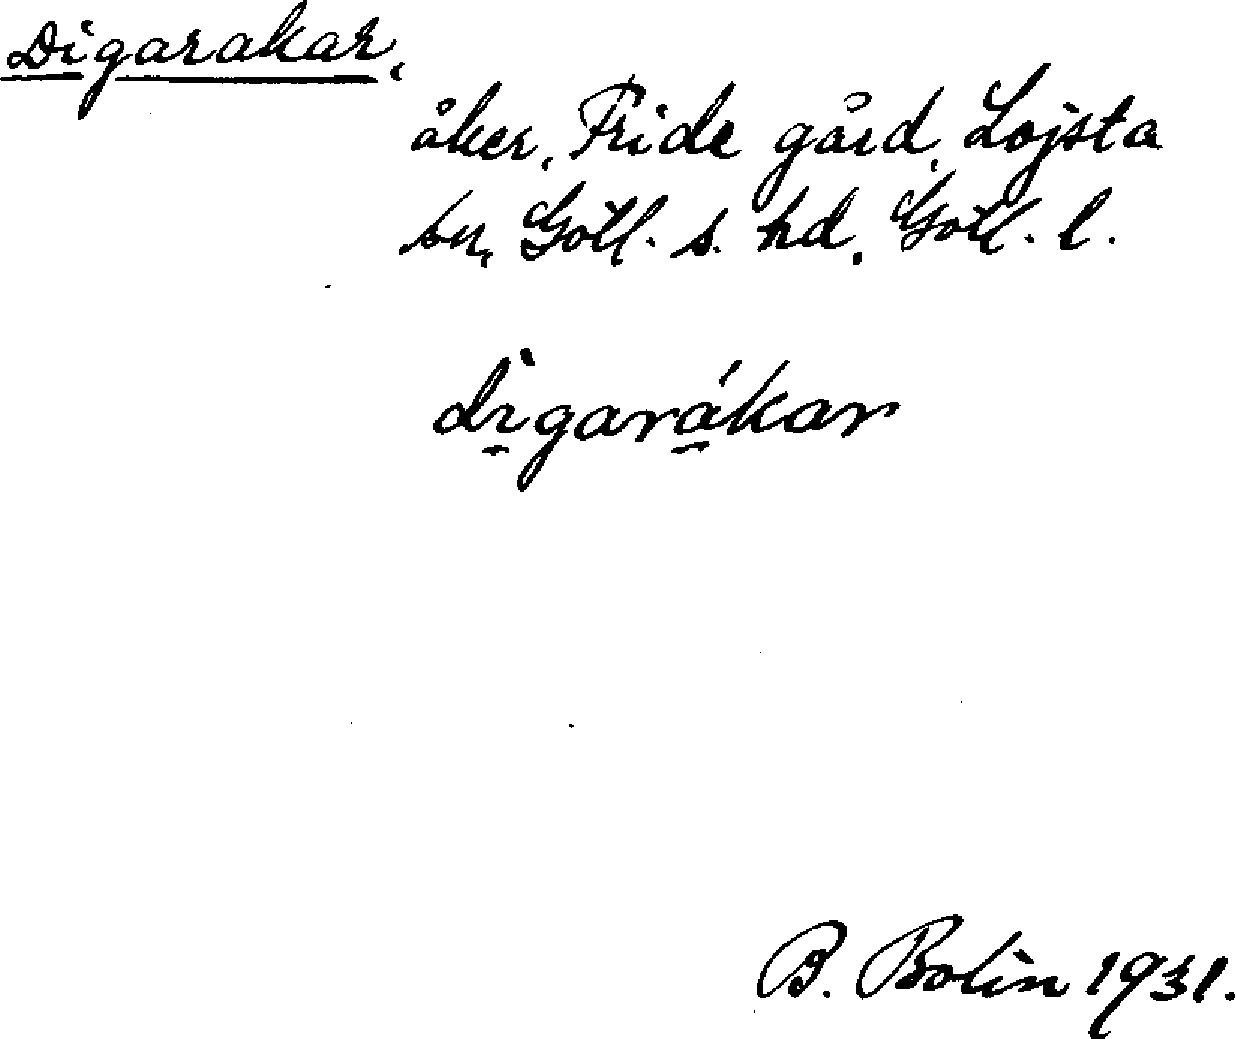 Digarakar,
åker, Fride gård, Lojsta
sn, Gotl. s. hd. Gotl. l.
dı̀garákar
B. Bolin 1931.